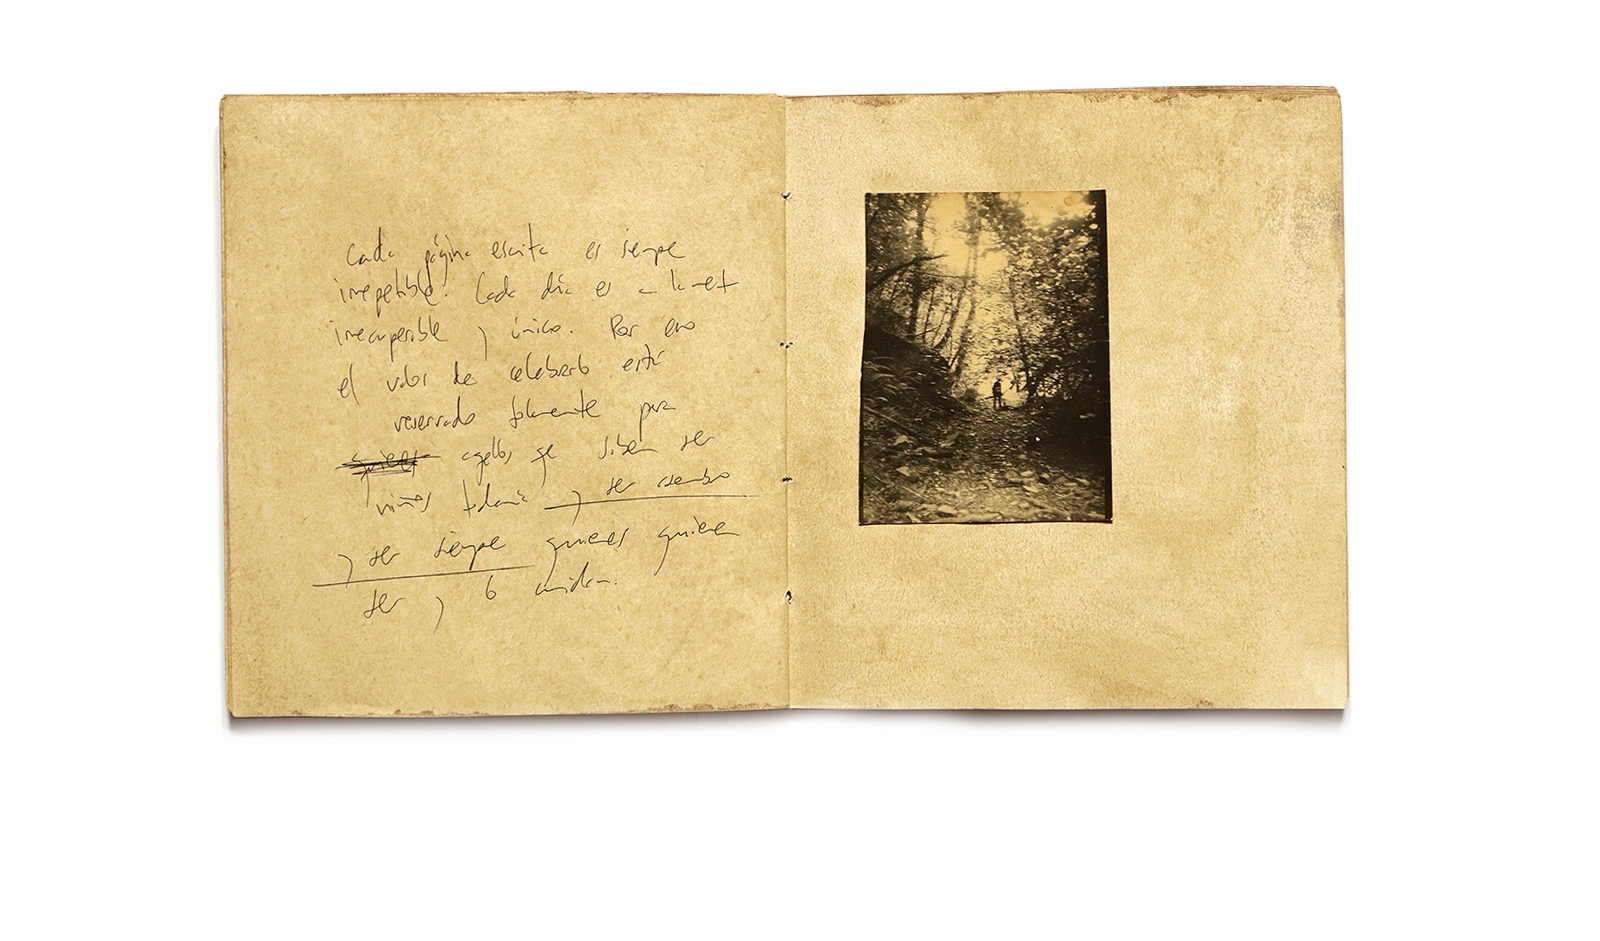 Cada página escrita es siempre
irrepetible. Cada día es
irrecuperable y único. Por eso
el valor de celebrarlo está
reservado solamente para
quienes aquellos que saben ser
niños todavía y ser asombro
y ser siempre quienes quieren
ser y lo cuidan.